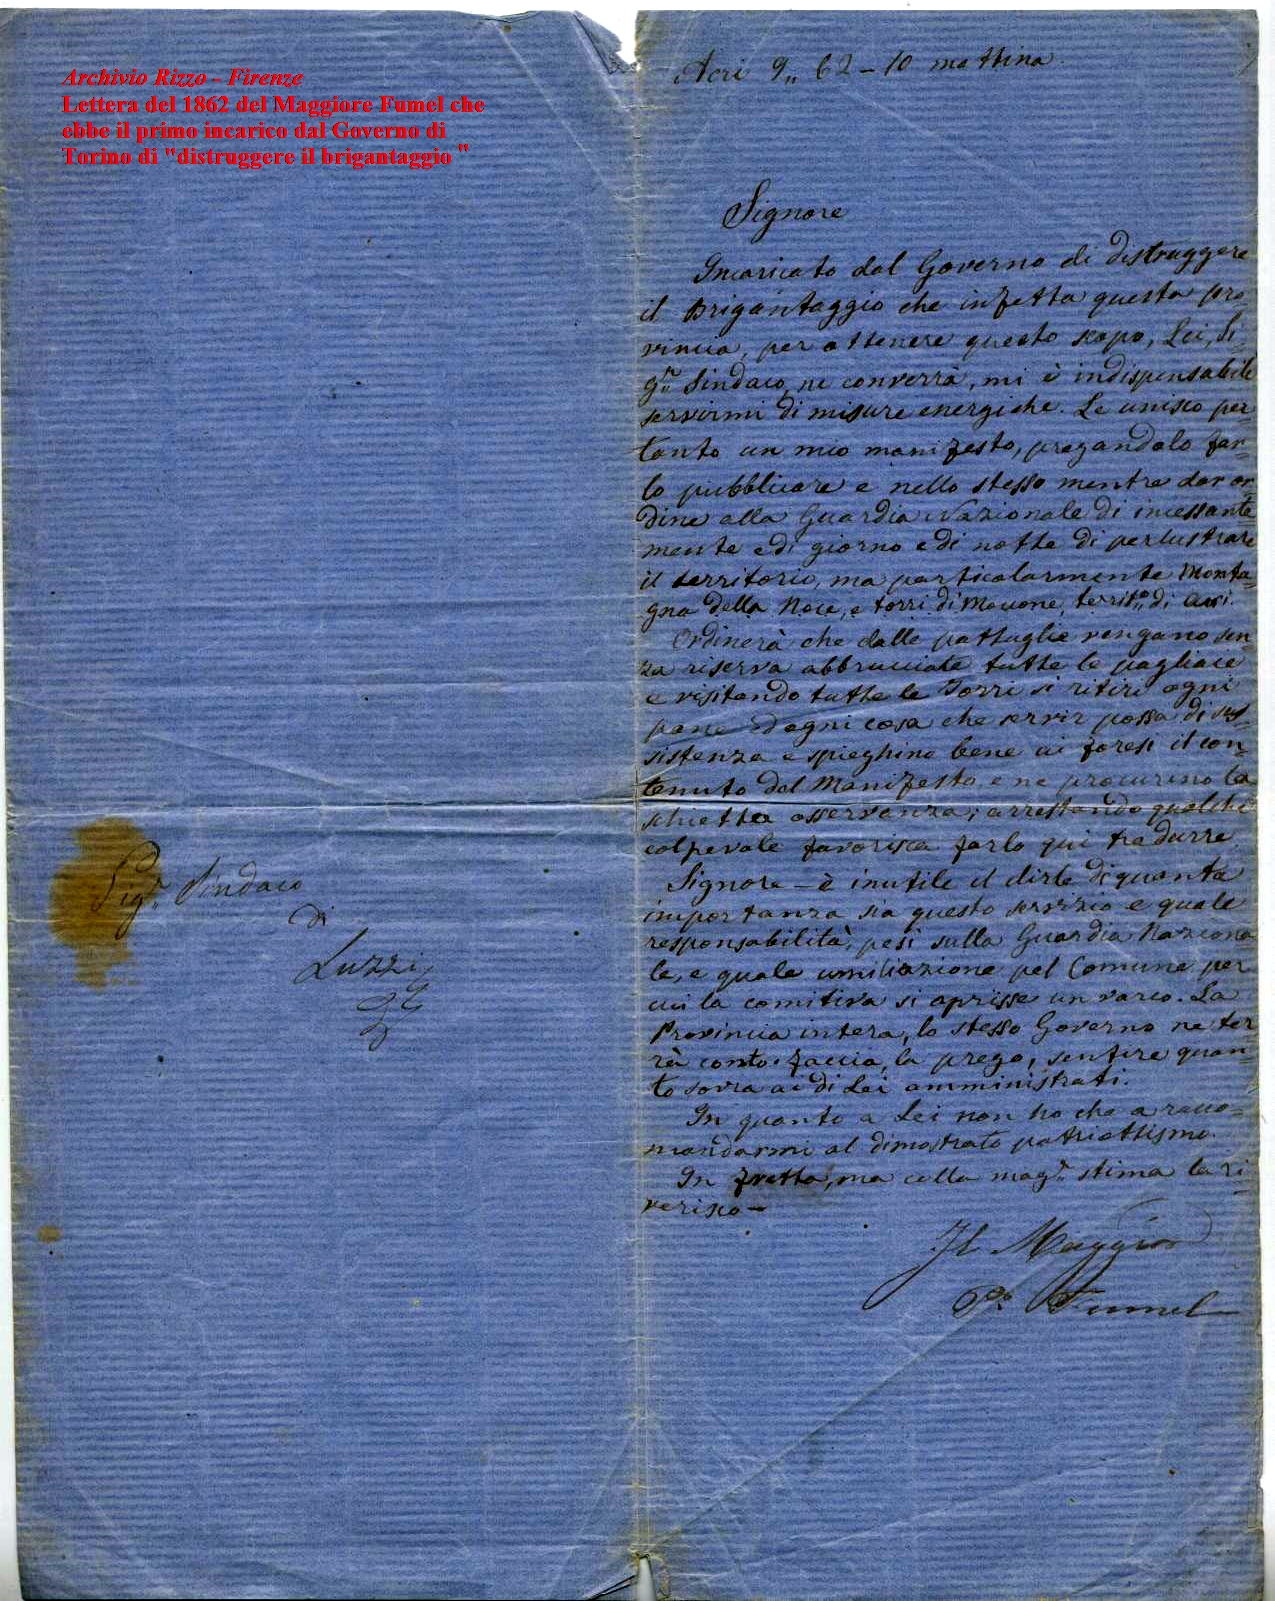 Archivio Rizzo - Firenze
Lettera del 1862 del Maggiore Fumel che
ebbe il primo incarico dal Governo di
Torino di "distruggere il brigantaggio"
Acri 9,, 62 - 10 mattina
Signore
Incaricato dal Governo di distruggere
il Brigantaggio che infetta questa pro-
vincia, per ottenere questo scopo, Lei, Si-
g.r Sindaco, ne converrà, mi è indispensabile
servirmi di misure energiche. Le unisco per-
tanto un mio manifesto, pregandolo far-
lo pubblicare e nello stesso mentre dar or-
dine alla Guardia Nazionale di incessante-
mente e di giorno e di notte di perlustrare
il territorio, ma particolarmente Monta-
gna della Noce, e torri di Mouone, territ.o di Acri.
Ordinerà che dalle pattuglie vengano sen-
za riserva abbruciate tutte le pagliaie
e visitando tutte le Torri si ritiri ogni
pane ed ogni cosa che servir possa di sus-
sistenza e spieghino bene ai foresi il con-
tenuto del Manifesto, e ne procurino la
schietta osservanza; arrestando qualche
colpevole favorisca farlo qui tradurre.
Signore - è inutile il dirle di quanta
importanza sia questo servizio e quale
responsabilità, pesi sulla Guardia Naziona
le, e quale umiliazione pel Comune per
cui la comitiva si aprisse un varco. La
Provincia intera, lo stesso Governo ne ter
rà conto. Faccia, la prego, sentire quan-
to sovra ai di Lei amministrati.
In quanto a Lei non ho che a racco-
mandarmi al dimostrato patriottismo.
In fretta, ma colla mag.r stima la ri-
verisco -
Il Maggiore
Fumel
Sig.r Sindaco
di
Luzzi